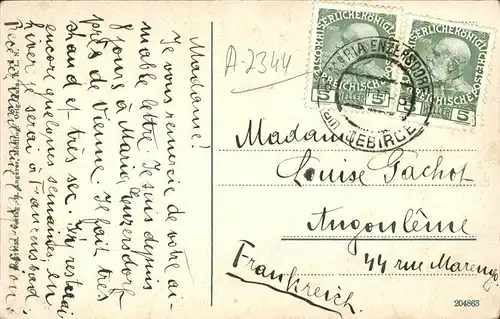 Madame!
Je vous remercie de votre ai-
mable lettre. Je suis depuis
8 jours à Maria Enzersdorf
près de Vienne. Il fait très
chaud et très sec. J'y resterai
encore quelques semaines, en
hiver je serai à
A-2344
MARIA ENZERSDORF
GEBIRGE
5
5
Madame
Louise Gachot
Angoulême
44 rue Marengo
Frankreich.
204863